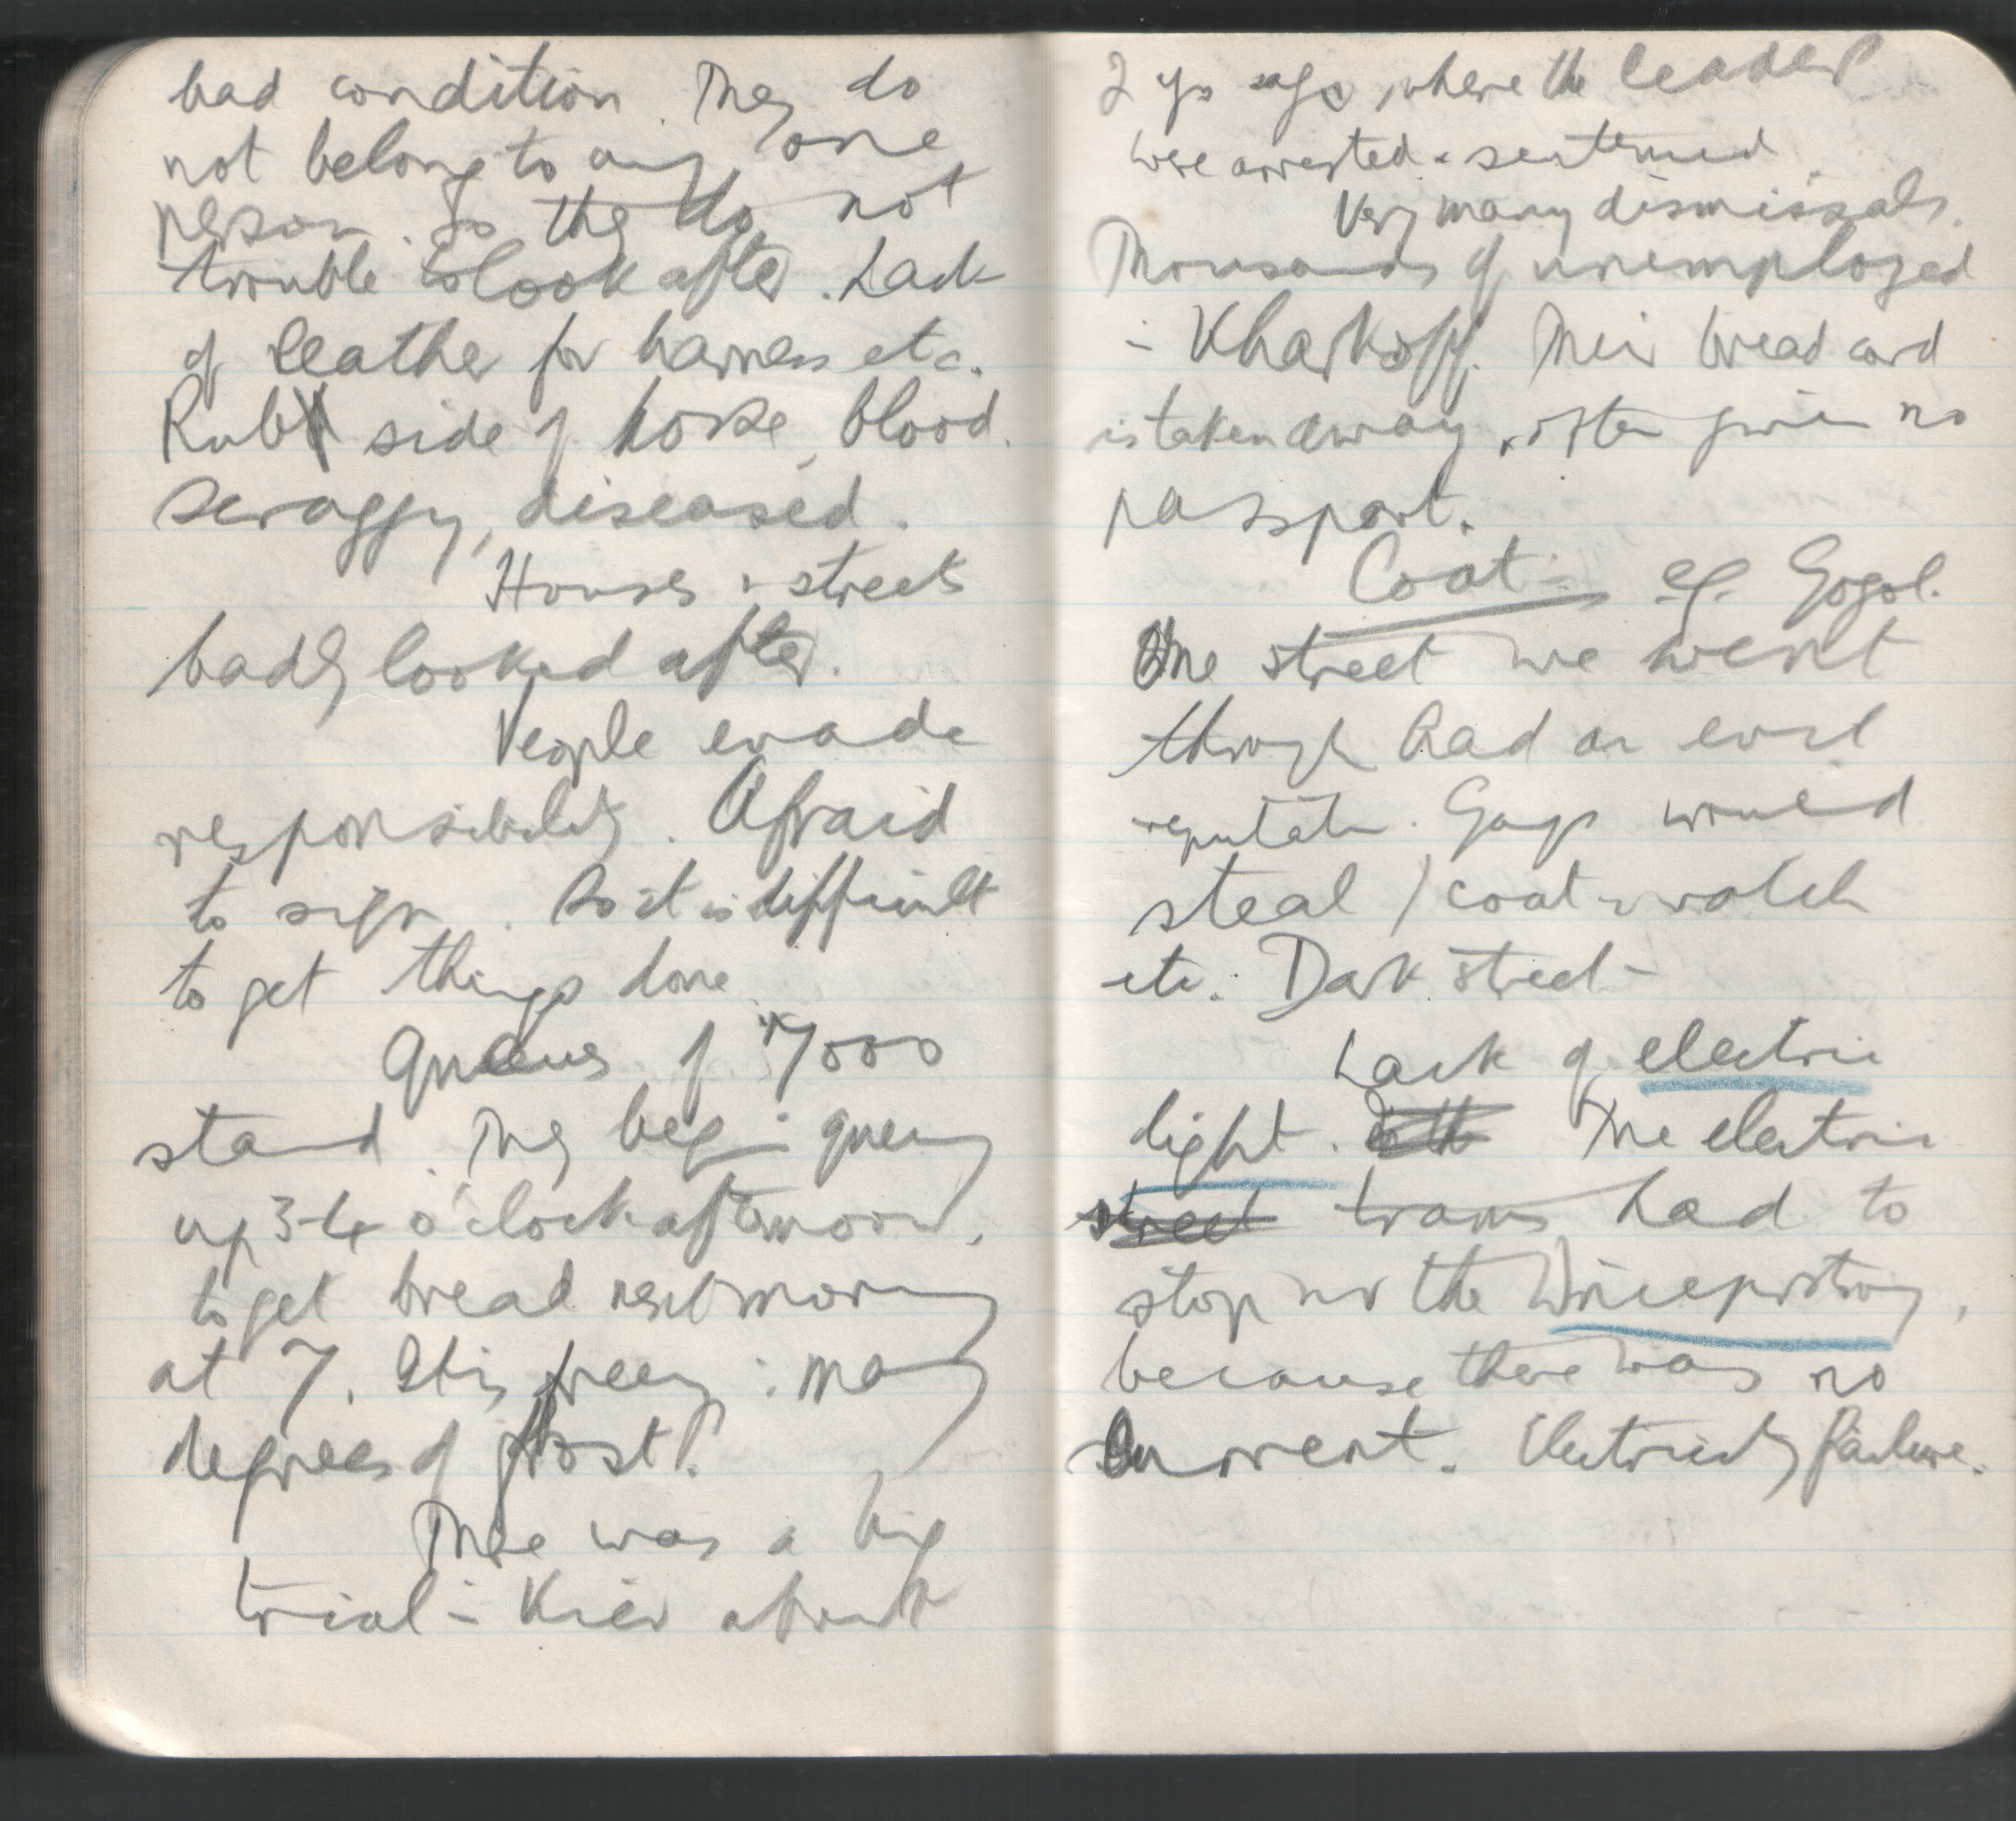 bad condition. They do
not belong to any one
person. So they do not
trouble to look after. Lack
of leather for harness etc.
Rub side of horse, blood.
Scraggy, diseased.
Houses & streets
badly looked after.
People evade
responsibility. Afraid
to sign. So it is difficult
to get things done.
Queues of 7000
stand. They begin queuing
up 3-4 o'clock afternoon,
to get bread next morning
at 7. It is freezing: many
degrees of frost.
There was a big
trial in Kiev about
2 yrs ago, where the leaders
were arrested & sentenced
Very many dismissals.
Thousands of unemployed
in Kharkoff. Their bread card
is taken away, often given no
passport.
Coat: eg. Gogol.
One street we went
through had an evil
reputation. Gangs would
steal / coat & watch
etc. Dark street
Lack of electric
light. The electric
street trams had to
stop in the Dnieprostroy,
because there was no
current. Electricity failure.